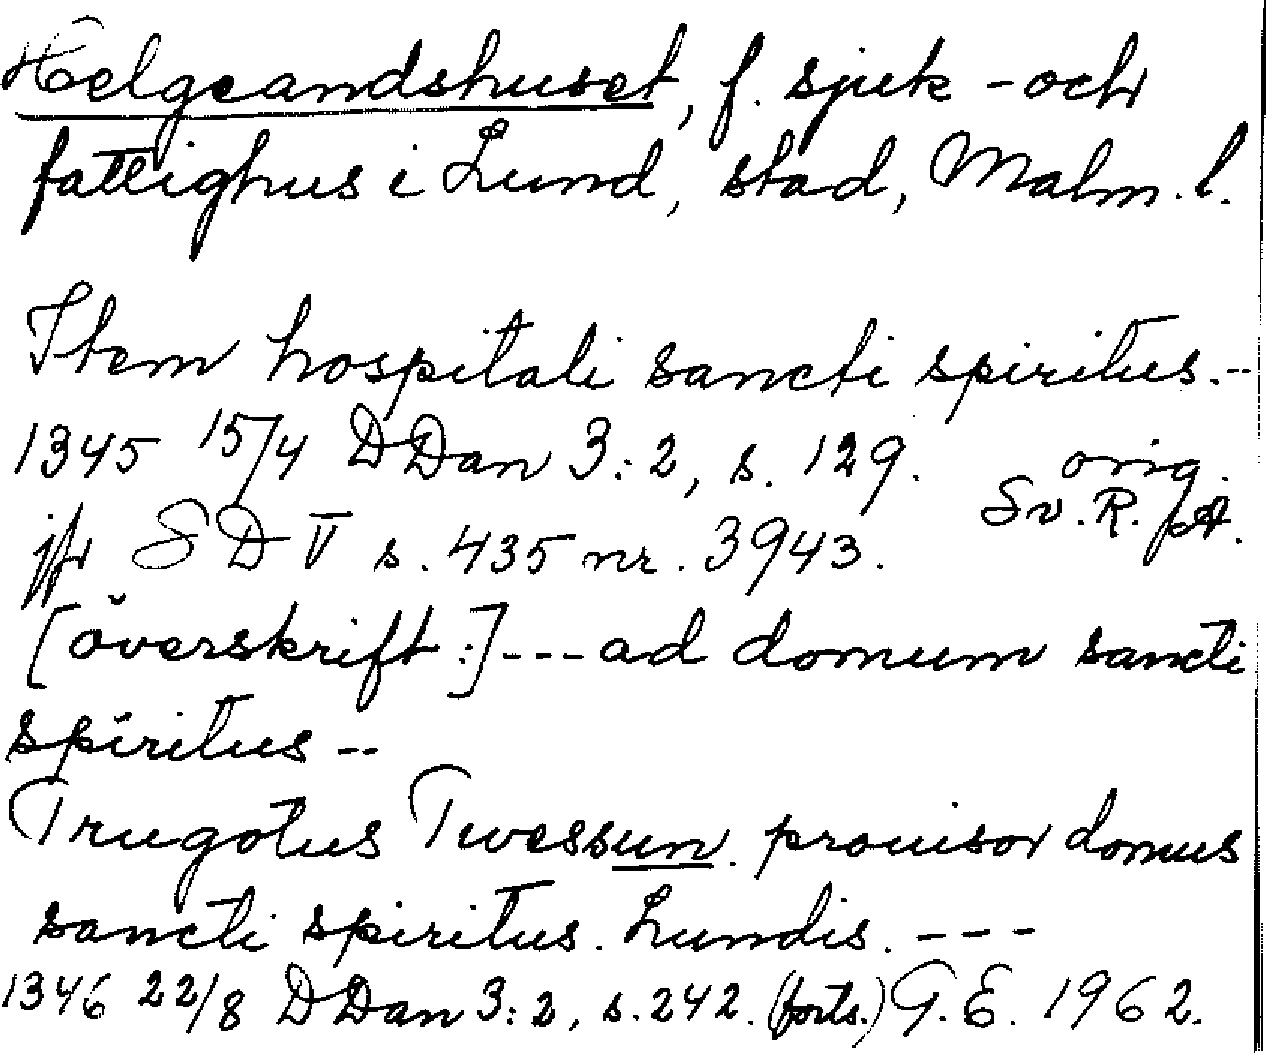 Helgeandshuset, f. sjuk- och
fattighus i Lund, stad, Malm. l.
Item hospitali sancti spiritus.--
1345 15/4 DDan 3:2, s. 129. orig.
Sv. R. pA.
jfr SD V s. 435 nr. 3943.
[överskrift:]--- ad domum sancti
spiritus --
Trugotus Twessun. prouisor domus
sancti spiritus. Lundis. ---
1346 22/8 DDan 3:2, s. 242. (forts.) G. E. 1962.